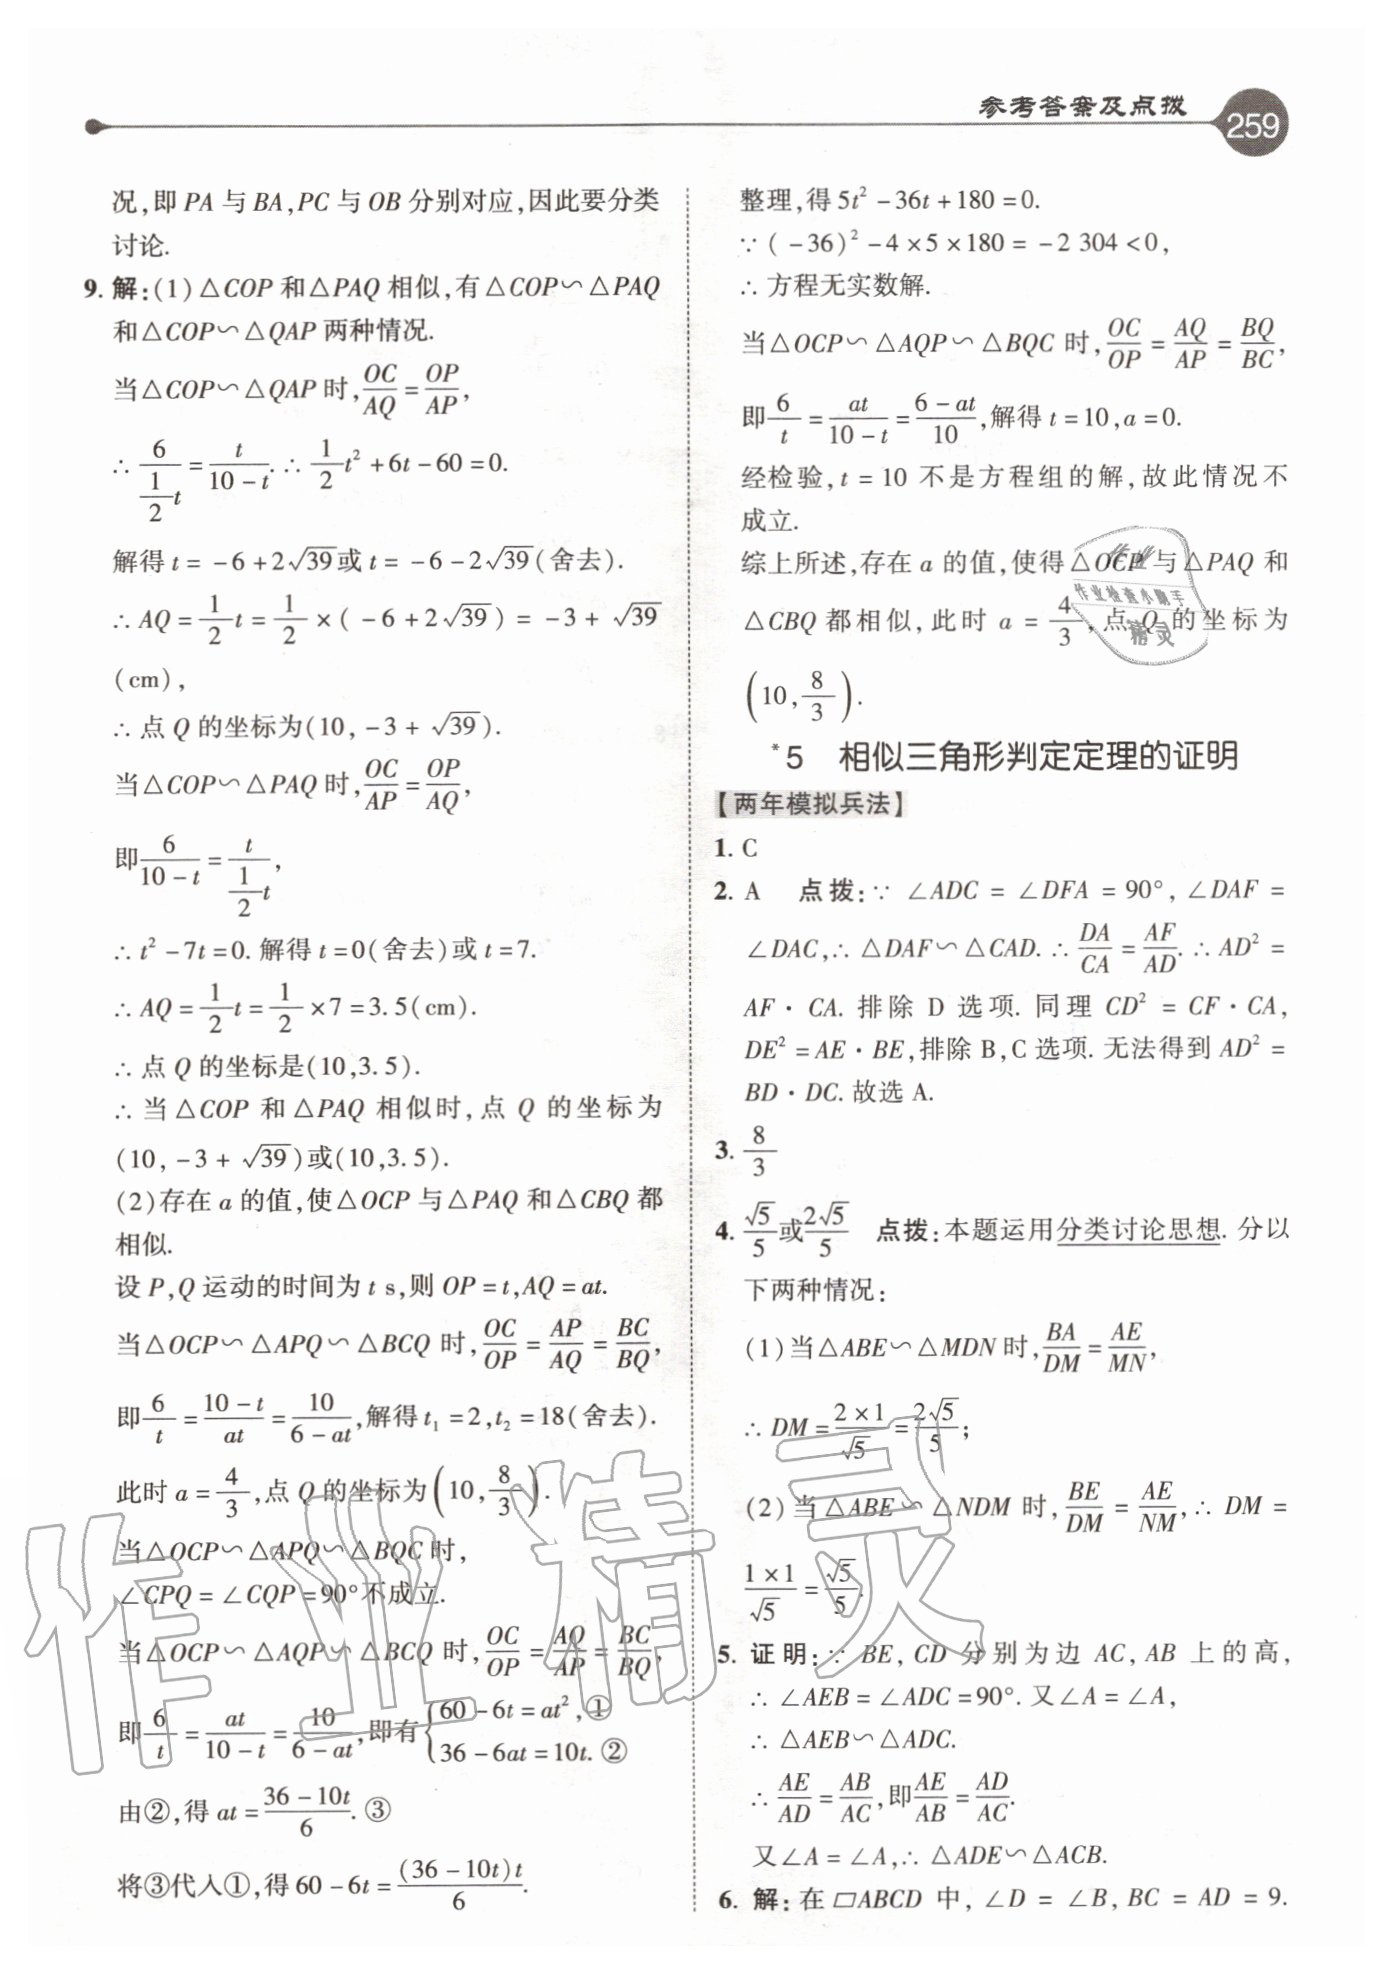 参考答案及点拨
259
况,即 PA 与 BA,PC 与 OB 分别对应,因此要分类
讨论.
9. 解:(1)△COP 和△PAQ 相似,有△COP∽△PAQ
和△COP∽△QAP 两种情况.
当△COP∽△QAP 时,OC/AQ=OP/AP,
∴ 6/(1/2 t)=t/(10-t).∴ 1/2 t²+6t-60=0.
解得 t=-6+2√39或 t=-6-2√39(舍去).
∴ AQ=1/2 t=1/2×(-6+2√39)=-3+√39
(cm),
∴ 点 Q 的坐标为(10,-3+√39).
当△COP∽△PAQ 时,OC/AP=OP/AQ,
即 6/(10-t)=t/(1/2 t),
∴ t²-7t=0. 解得 t=0(舍去)或 t=7.
∴ AQ=1/2 t=1/2×7=3.5(cm).
∴ 点 Q 的坐标是(10,3.5).
∴ 当△COP 和△PAQ 相似时,点 Q 的坐标为
(10,-3+√39)或(10,3.5).
(2)存在 a 的值,使△OCP 与△PAQ 和△CBQ 都
相似.
设 P,Q 运动的时间为 t s,则 OP=t,AQ=at.
当△OCP∽△APQ∽△BCQ 时,OC/OP=AP/AQ=BC/BQ,
即 6/t=(10-t)/at=10/(6-at),解得 t₁=2,t₂=18(舍去).
此时 a=4/3,点 Q 的坐标为(10,8/3).
当△OCP∽△APQ∽△BQC 时,
∠CPQ=∠CQP=90°不成立.
当△OCP∽△AQP∽△BCQ 时,OC/OP=AQ/AP=BC/BQ,
即 6/t=at/(10-t)=10/(6-at),即有{60-6t=at²,①
36-6at=10t.②
由②,得 at=(36-10t)/6.③
将③代入①,得 60-6t=(36-10t)t/6.
整理,得 5t²-36t+180=0.
∵ (-36)²-4×5×180=-2 304<0,
∴ 方程无实数解.
当△OCP∽△AQP∽△BQC 时,OC/OP=AQ/AP=BQ/BC,
即 6/t=at/(10-t)=(6-at)/10,解得 t=10,a=0.
经检验,t=10 不是方程组的解,故此情况不
成立.
综上所述,存在 a 的值,使得△OCP 与△PAQ 和
△CBQ 都相似,此时 a=4/3,点 Q 的坐标为
(10,8/3).
*5 相似三角形判定定理的证明
【两年模拟兵法】
1. C
2. A 点拨:∵ ∠ADC=∠DFA=90°,∠DAF=
∠DAC,∴ △DAF∽△CAD.∴ DA/CA=AF/AD.∴ AD²=
AF·CA. 排除 D 选项. 同理 CD²=CF·CA,
DE²=AE·BE,排除 B,C 选项. 无法得到 AD²=
BD·DC. 故选 A.
3. 8/3
4. √5/5或2√5/5 点拨:本题运用分类讨论思想. 分以
下两种情况:
(1)当△ABE∽△MDN 时,BA/DM=AE/MN,
∴ DM=2×1/√5=2√5/5;
(2)当△ABE∽△NDM 时,BE/DM=AE/NM,∴ DM=
1×1/√5=√5/5.
5. 证明:∵ BE,CD 分别为边 AC,AB 上的高,
∴ ∠AEB=∠ADC=90°. 又∠A=∠A,
∴ △AEB∽△ADC.
∴ AE/AD=AB/AC,即AE/AB=AD/AC.
又∠A=∠A,∴ △ADE∽△ACB.
6. 解:在▱ABCD 中,∠D=∠B,BC=AD=9.
作业
作业检查小助手
精灵
作业精灵